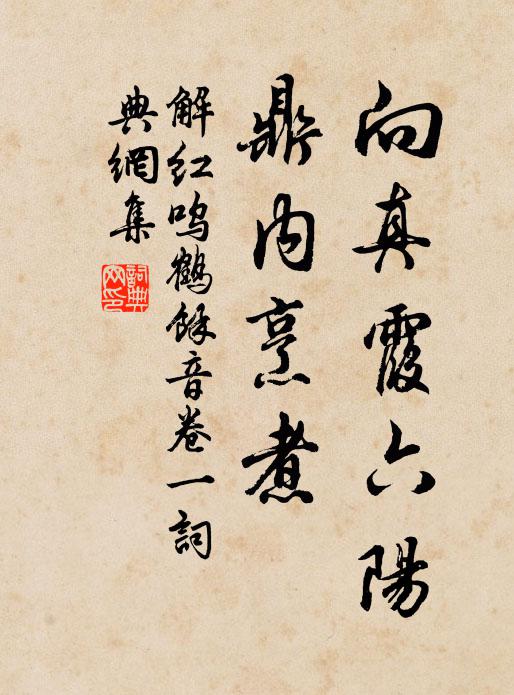 向真霞六陽
鼎內烹煮
解紅鳴鶴餘音卷一詞
典網集
詞典網印